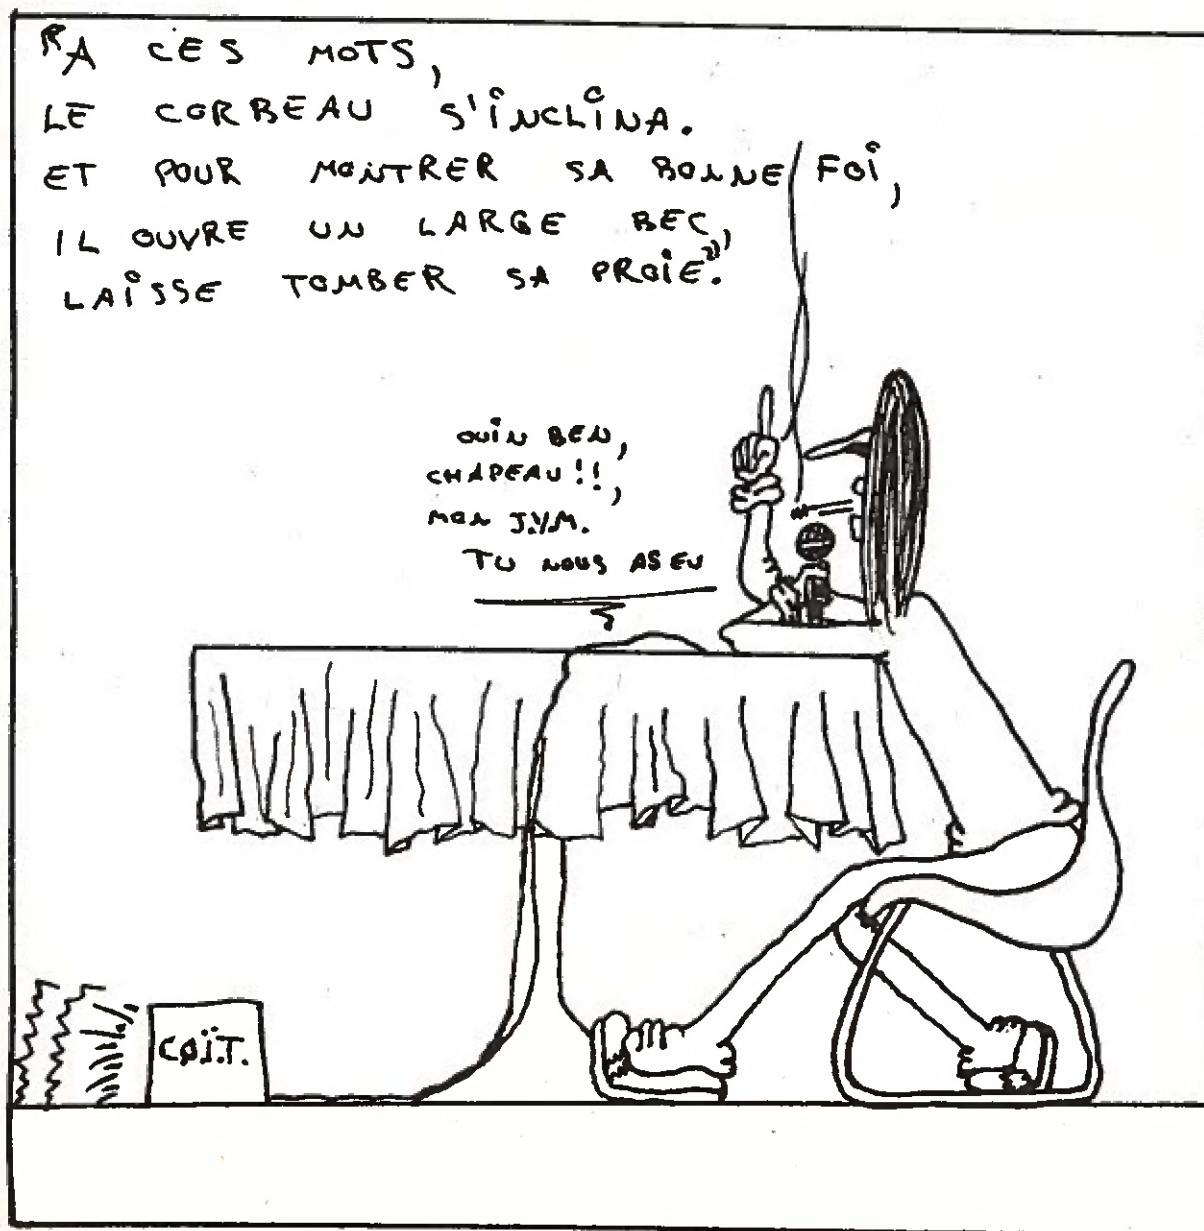 "A CES MOTS,
LE CORBEAU S'INCLINA.
ET POUR MONTRER SA BONNE FOI,
IL OUVRE UN LARGE BEC,
LAISSE TOMBER SA PROIE."
OUIN BEN,
CHAPEAU!!,
MON J.Y.M.
TU NOUS AS EU
COÏ.T.